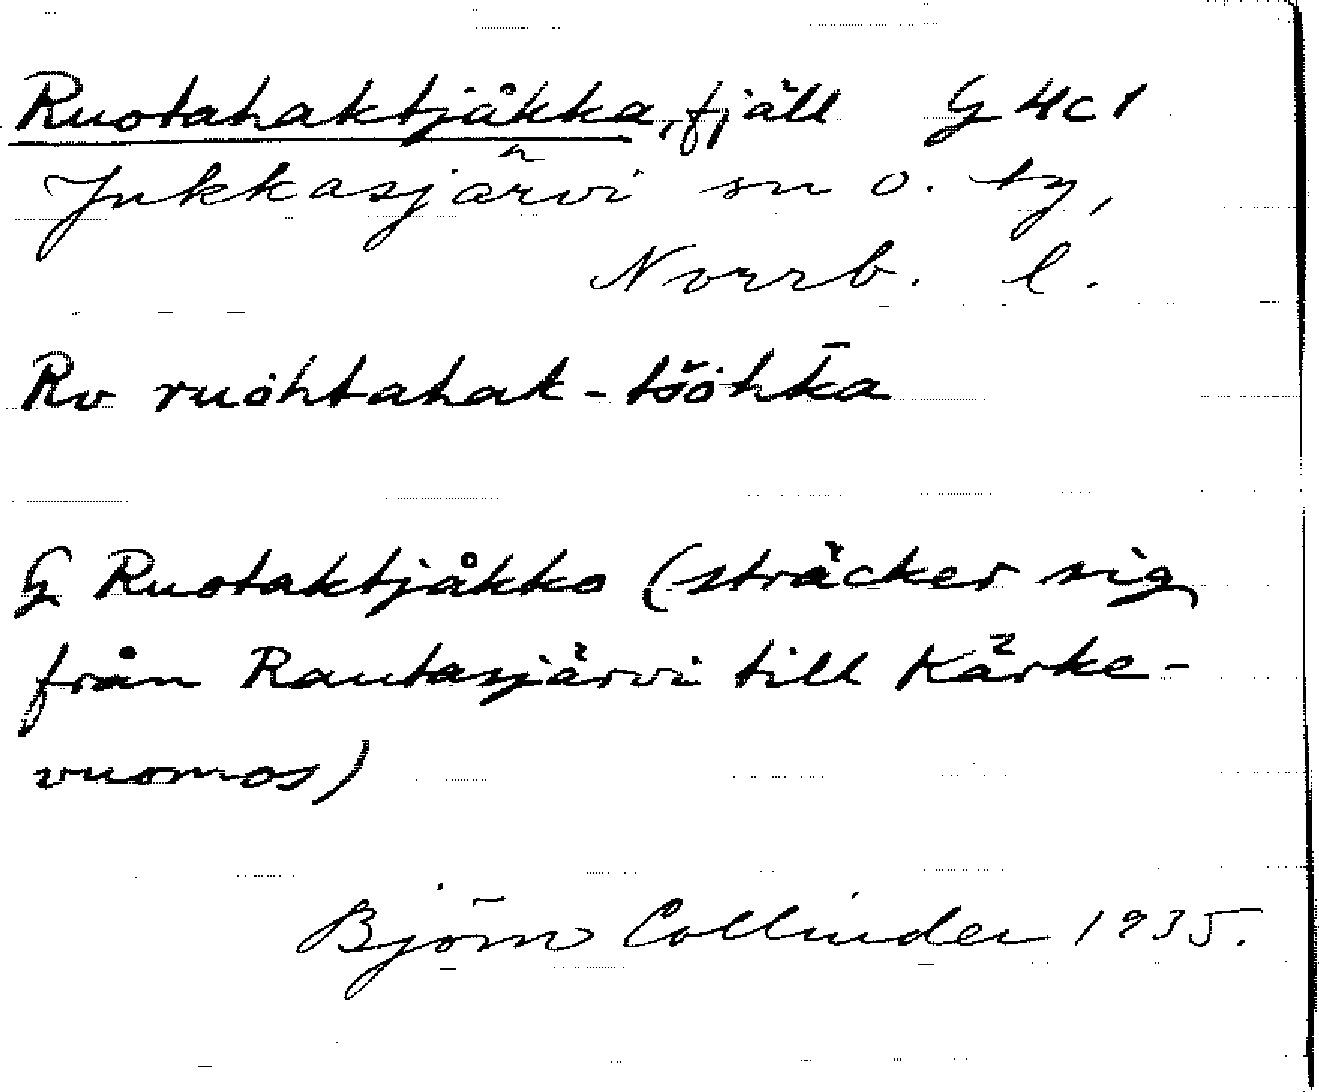 Ruotahaktjåkka, fjäll G 4c1
Jukkasjärvi sn o. tg,
Norrb. l.
Rv ruöhtahak-tšöhka
G Ruotaktjåkko (sträcker sig
från Rautasjärvi till Kärke-
vuomos)
Björn Collinder 1935.